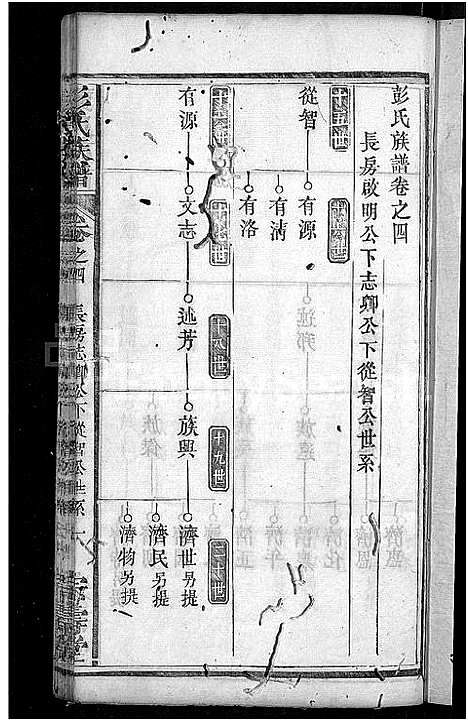 彭氏族譜卷之四
長房啟明公下志卿公下從智公世系
十五世
從智
十六世
有源
有清
有洛
十六世
有源
十七世
文志
十八世
述芳
十九世
族興
二十世
濟世另提
濟民另提
濟物另提
彭氏族譜
卷之四
長房志卿公下從智公世系